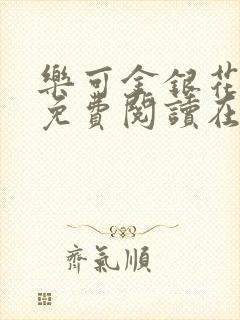 樂可金銀花
免費閱讀在
齊氣順